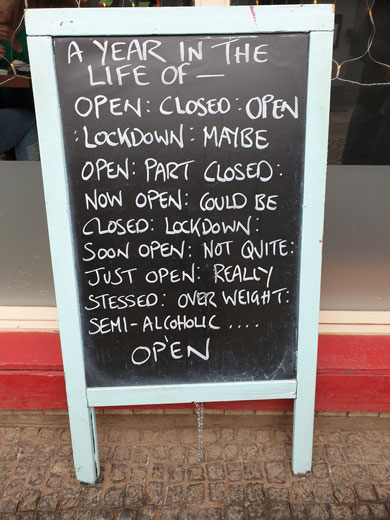 A YEAR IN THE
LIFE OF —
OPEN: CLOSED: OPEN
: LOCKDOWN: MAYBE
OPEN: PART CLOSED:
NOW OPEN: COULD BE
CLOSED: LOCKDOWN:
SOON OPEN: NOT QUITE:
JUST OPEN: REALLY
STESSED: OVER WEIGHT:
SEMI-ALCOHOLIC ....
OPEN